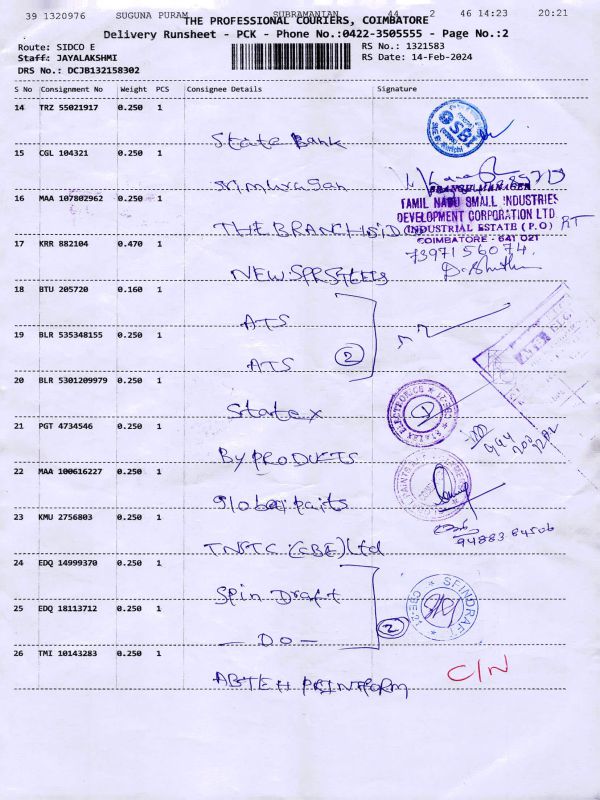 39 1320976 SUGUNA PURAM SUBRAMANIAN 44 2 46 14:23 20:21
THE PROFESSIONAL COURIERS, COIMBATORE
Delivery Runsheet - PCK - Phone No.:0422-3505555 - Page No.:2
Route: SIDCO E RS No.: 1321583
Staff: JAYALAKSHMI RS Date: 14-Feb-2024
DRS No.: DCJB132158302
S No Consignment No Weight PCS Consignee Details Signature
14 TRZ 55021917 0.250 1
State Bank
SBI
15 CGL 104321 0.250 1
Srimurugan
BRANCH MANAGER
16 MAA 107802962 0.250 1
TAMIL NADU SMALL INDUSTRIES
DEVELOPMENT CORPORATION LTD.
THE BRANCH SIDCO
INDUSTRIAL ESTATE (P.O)
17 KRR 882104 0.470 1
COIMBATORE - 641 021
7397156074
NEW.SPR STEELS
18 BTU 205720 0.160 1
ATS
19 BLR 535348155 0.250 1
ATS
2
20 BLR 5301209979 0.250 1
Statex
STATEX ELECTRONICS * CBE-21
21 PGT 4734546 0.250 1
By PRODUCTS
22 MAA 100616227 0.250 1
Global parts
23 KMU 2756803 0.250 1
94883 84506
TNSTC (CBE) Ltd
24 EDQ 14999370 0.250 1
Spin Draft
SPINDRAFT * CBE-21 *
25 EDQ 18113712 0.250 1
2
- DO -
26 TMI 10143283 0.250 1
C/N
ABTEH PRINTFORM